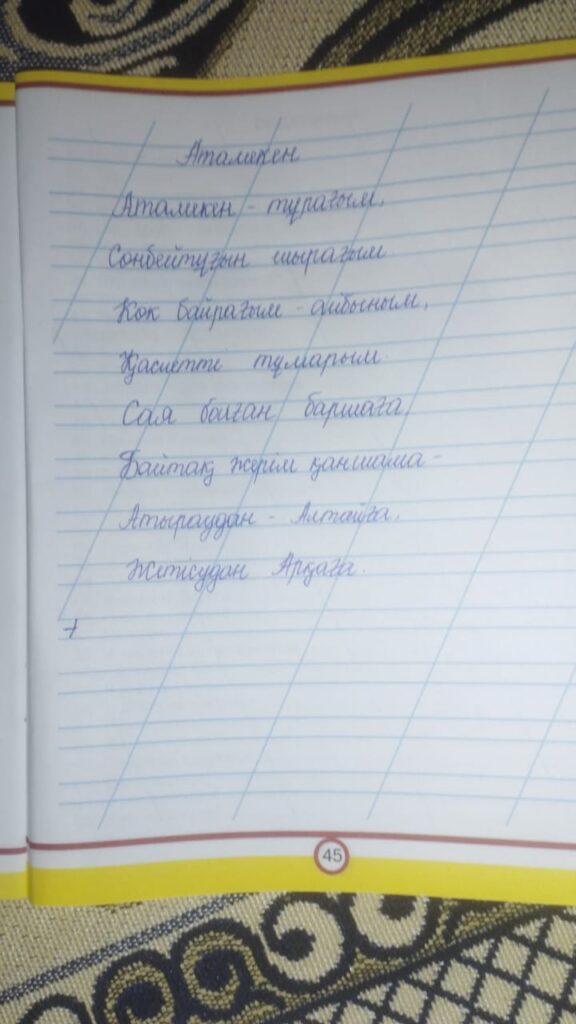 Атамекен
Атамекен - тұрағым,
Сөнбейтұғын шырағым.
Көк байрағым - айбыным,
Қасиетті тұмарым.
Сая болған баршаға,
Байтақ жерім қаншама -
Атыраудан - Алтайға,
Жетісудан Арқаға.
45